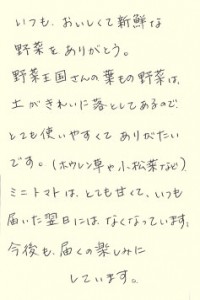 いつも、おいしくて新鮮な
野菜をありがとう。
野菜王国さんの葉もの野菜は、
土がきれいに落としてあるので、
とても使いやすくてありがたい
です。(ホウレン草や小松菜など)
ミニトマトは、とても甘くて、いつも
届いた翌日にはなくなっています。
今後も、届くの楽しみに
しています。